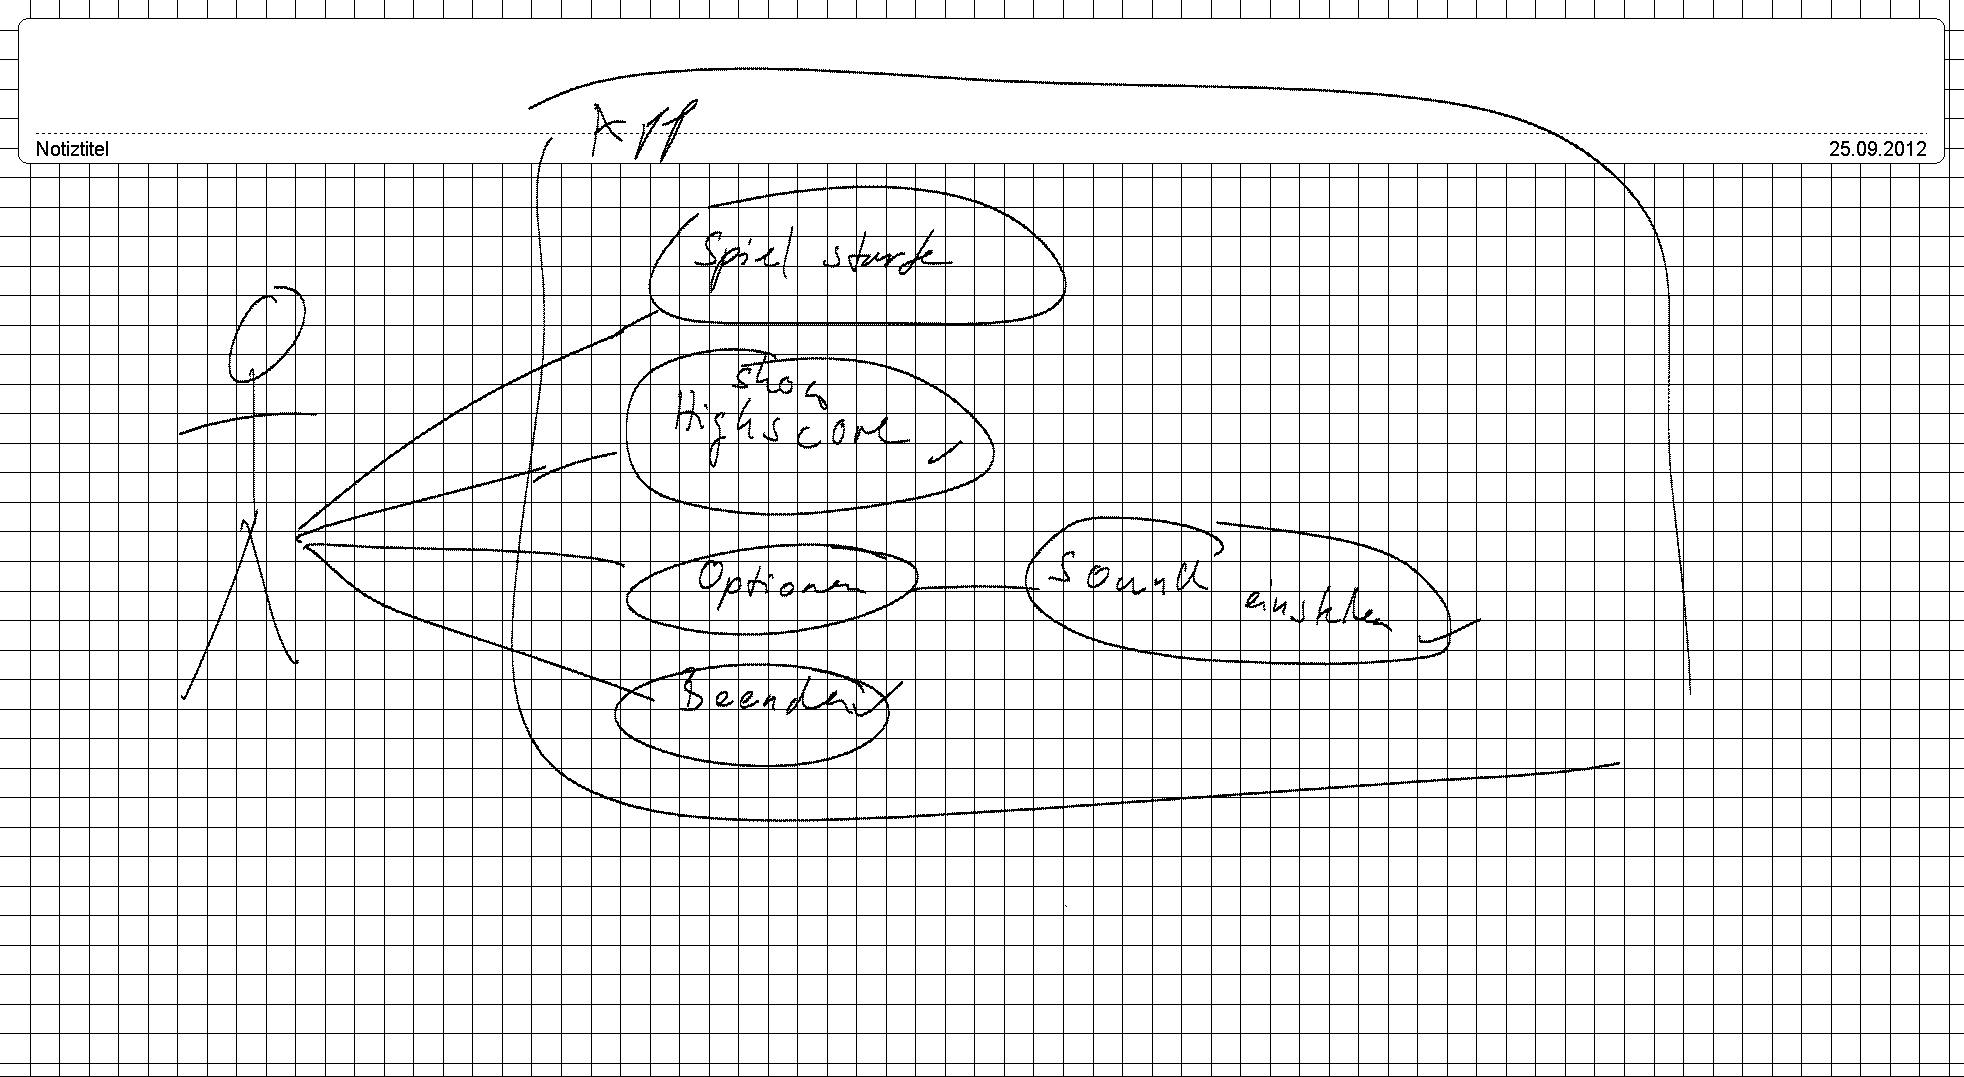 Notiztitel
25.09.2012
App
Spiel starte
show
Highscore
Optionen
Sound einstellen
Beenden